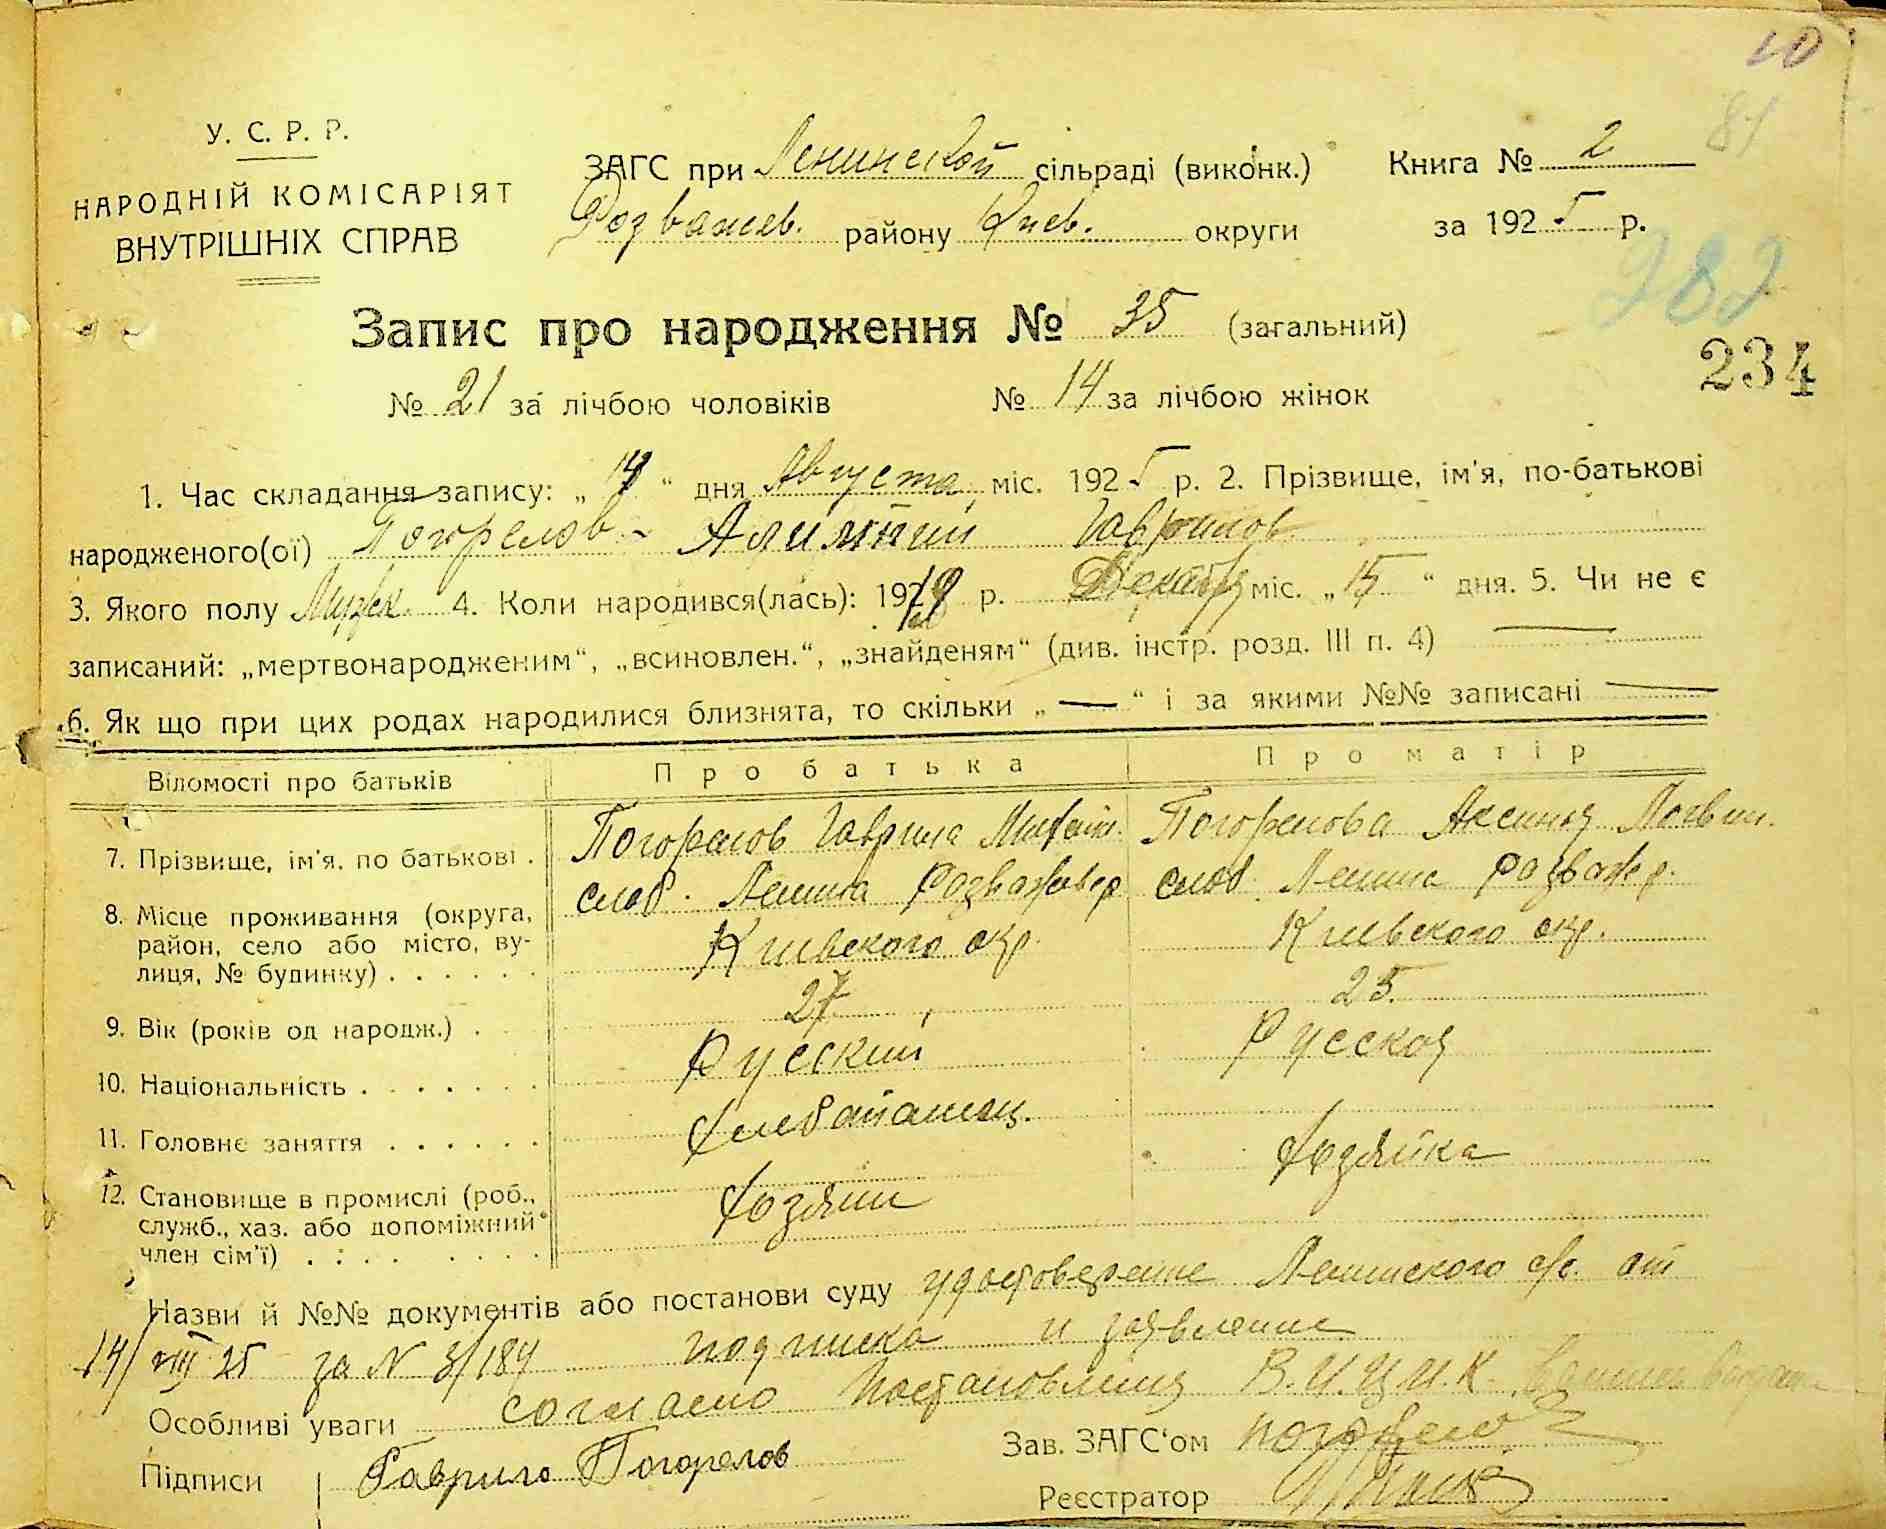 10
81
У. С. Р. Р.
НАРОДНІЙ КОМІСАРІЯТ
ВНУТРІШНІХ СПРАВ
ЗАГС при Ленинской сільраді (виконк.) Книга № 2
Розважев. району Киев. округи за 1925 р.
282
Запис про народження № 35 (загальний)
234
№ 21 за лічбою чоловіків № 14 за лічбою жінок
1. Час складання запису: „14“ дня Августа міс. 1925 р. 2. Прізвище, ім'я, по-батькові
народженого(ої) Погорелов Алимпий Гаврилов
3. Якого полу Мужск. 4. Коли народився(лась): 19 р. Декабр міс. „15“ дня. 5. Чи не є
записаний: „мертвонародженим“, „всиновлен.“, „знайденям“ (див. інстр. розд. III п. 4) —
6. Як що при цих родах народилися близнята, то скільки „—“ і за якими №№ записані —
Відомості про батьків Про батька Про матір
7. Прізвище, ім'я, по батькові . Погорелов Гаврила Михайл. Погорелова Аксиния Логвин.
8. Місце проживання (округа, район, село або місто, вулиця, № будинку) . . . . . . слоб. Ленина Розважевр Киевского окр. слоб. Ленина Розважр. Киевского окр.
9. Вік (років од народж.) . 27 25.
10. Національність . . . . . . . Русский Русская
11. Головнє заняття . . . . . . Хлебопашец. Хозяйка
12. Становище в промислі (роб., служб., хаз. або допоміжний член сім'ї) . . . . . . . Хозяин
Назви й №№ документів або постанови суду удостоверение Ленинского с/с. от
14/VIII 25 за N 3/184 подписка и заявление
Особливі уваги согласно Постановления В.У.Ц.И.К.
Підписи Гаврило Погорелов Зав. ЗАГС'ом Погорело
Реєстратор